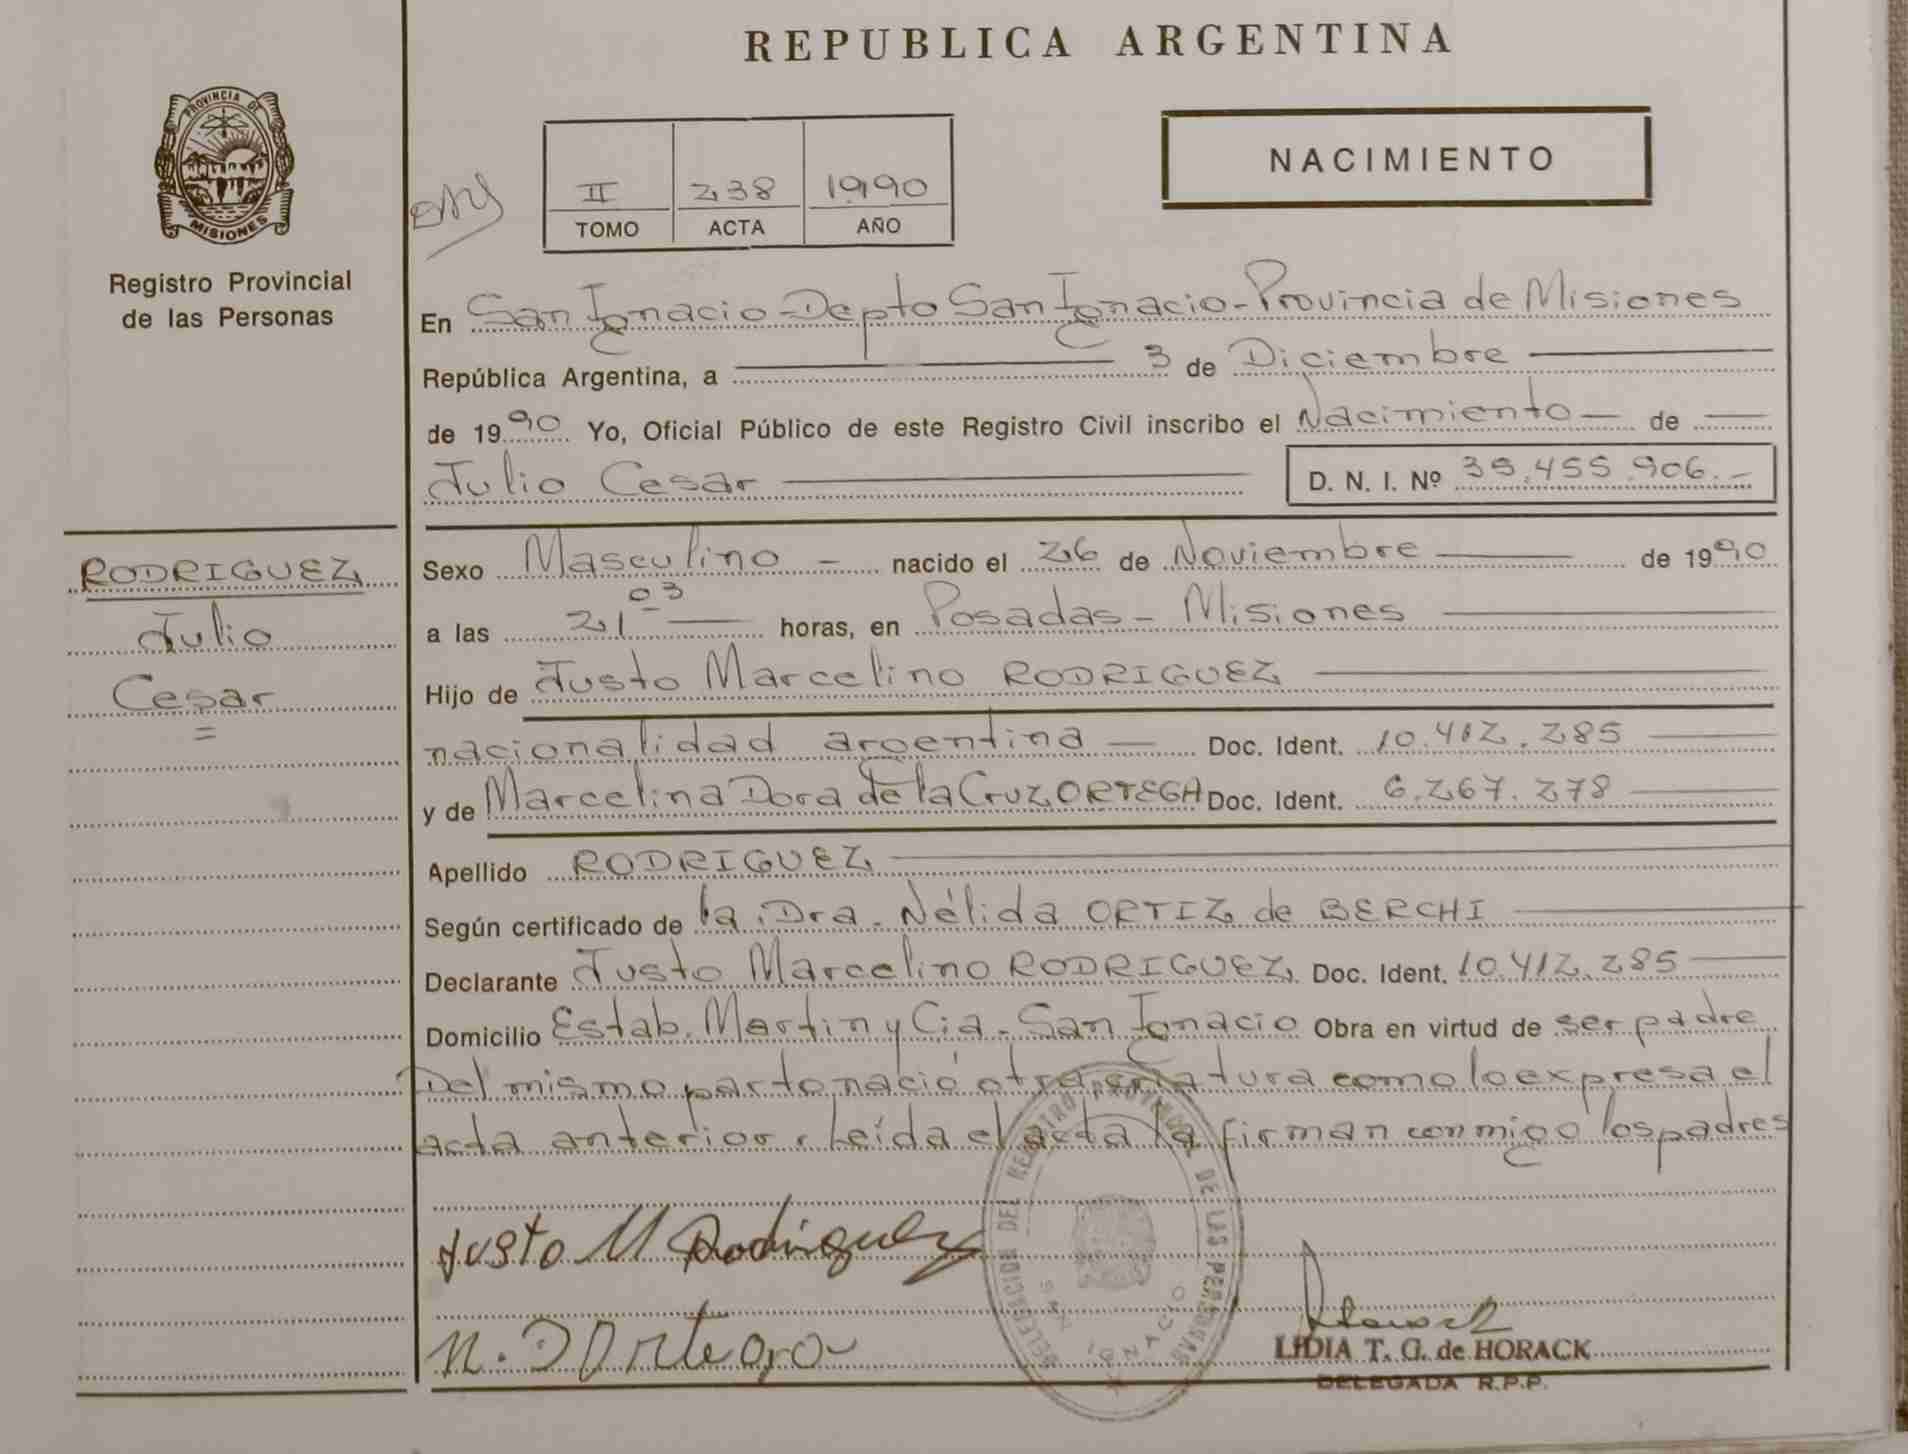 REPUBLICA ARGENTINA
PROVINCIA DE
MISIONES
Registro Provincial
de las Personas
II 238 1990
TOMO ACTA AÑO
NACIMIENTO
En San Ignacio - Depto San Ignacio - Provincia de Misiones
República Argentina, a 3 de Diciembre
de 1990 Yo, Oficial Público de este Registro Civil inscribo el Nacimiento — de —
Julio Cesar D. N. I. Nº 35.455.906.-
RODRIGUEZ
Julio
Cesar
=
Sexo Masculino - nacido el 26 de Noviembre de 1990
a las 21 03 horas, en Posadas - Misiones
Hijo de Justo Marcelino RODRIGUEZ
nacionalidad argentina — Doc. Ident. 10.412.285
y de Marcelina Dora de la Cruz ORTEGA Doc. Ident. 6.267.278
Apellido RODRIGUEZ
Según certificado de la Dra. Nélida ORTIZ de BERCHI
Declarante Justo Marcelino RODRIGUEZ Doc. Ident. 10.412.285
Domicilio Estab. Martin y Cia - San Ignacio Obra en virtud de ser padre
Del mismo parto nació otra criatura como lo expresa el
acta anterior. Leída el acta la firman conmigo los padres
Justo M Rodriguez
M. D Ortega
DELEGACION DEL REGISTRO PROVINCIAL DE LAS PERSONAS
SAN IGNACIO
LIDIA T. G. de HORACK
DELEGADA R.P.P.